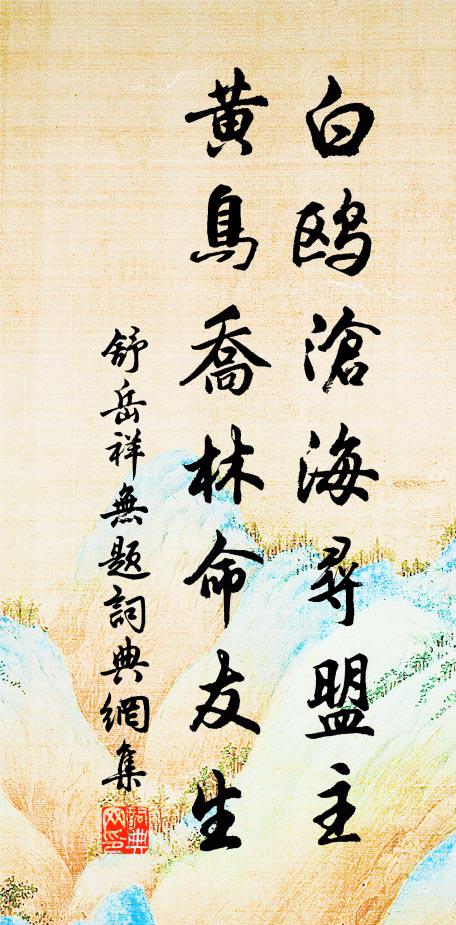 白鸥滄海尋盟主
黄鳥喬林命友生
舒岳祥無题詞典網集
詞典